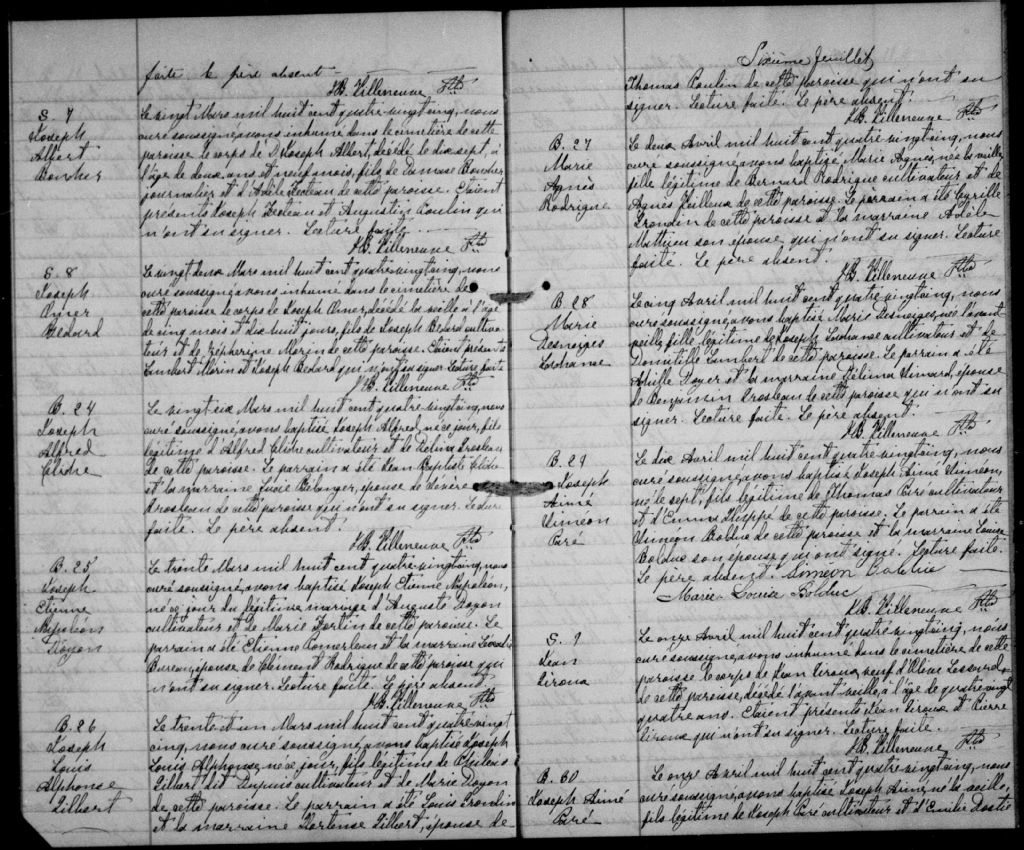 faite le père absent.
J.B. Villeneuve Ptre
S. 7
Joseph
Albert
Boucher
Le vingt Mars mil huit cent quatre-vingt cinq, nous
curé soussigné, avons inhumé dans le cimetière de cette
paroisse le corps de Joseph Albert, décédé le dix sept, à
l'âge de deux ans et neuf mois, fils de Damase Boucher
journalier et d'Adèle Fecteau de cette paroisse. Etaient
présents Joseph Fecteau et Augustin Poulin qui
n'ont su signer. Lecture faite.
J.B. Villeneuve Ptre
S. 8
Joseph
Omer
Bedard
Le vingt deux Mars mil huit cent quatre-vingt cinq, nous
curé soussigné avons inhumé dans le cimetière de
cette paroisse le corps de Joseph Omer, décédé la veille à l'âge
de cinq mois et dix huit jours, fils de Joseph Bedard cultiva-
teur et de Zépherine Morin de cette paroisse. Etaient présents
Lambert Morin et Joseph Bedard qui n'ont su signer Lecture faite
J.B. Villeneuve Ptre
B. 24
Joseph
Alfred
Cliche
Le vingt six Mars mil huit cent quatre-vingt cinq, nous
curé soussigné, avons baptisé Joseph Alfred, né ce jour, fils
légitime d'Alfred Cliche cultivateur et de Delina Drosteau
de cette paroisse. Le parrain a été Jean Baptiste Cliche
et la marraine Lucie Bélanger, épouse de
Drosteau de cette paroisse qui n'ont su signer. Lecture
faite. Le père absent.
J.B. Villeneuve Ptre
B. 25
Joseph
Etienne
Napoléon
Doyon
Le trente Mars mil huit cent quatre-vingt cinq, nous
curé soussigné, avons baptisé Joseph Etienne Napoléon,
né ce jour du légitime mariage d'Auguste Doyon
cultivateur et de Marie Fortin de cette paroisse. Le
parrain a été Etienne Pomerleau et la marraine Léocadie
Bureau, épouse de Clément Rodrigue de cette paroisse qui
n'ont su signer. Lecture faite. Le père absent.
J.B. Villeneuve Ptre
B. 26
Joseph
Louis
Alphonse
Gilbert
Le trente et un Mars mil huit cent quatre-vingt
cinq, nous curé soussigné, avons baptisé Joseph
Louis Alphonse, né ce jour, fils légitime de Philéas
Gilbert dit Dupuis cultivateur et de Marie Doyon
de cette paroisse. Le parrain a été Louis Grondin
et la marraine Hortense Gilbert, épouse de
Sixième feuillet
Thomas Poulin de cette paroisse qui n'ont su
signer. Lecture faite. Le père absent.
J.B. Villeneuve Ptre
B. 27
Marie
Agnès
Rodrigue
Le deux Avril mil huit cent quatre-vingt cinq, nous
curé soussigné, avons baptisé Marie Agnès, née la veille,
fille légitime de Bernard Rodrigue cultivateur et de
Agnès Veilleux de cette paroisse. Le parrain a été Cyrille
Grondin de cette paroisse et la marraine Adèle
Mathieu son épouse qui n'ont su signer. Lecture
faite. Le père absent.
J.B. Villeneuve Ptre
B. 28
Marie
Desneiges
Lachance
Le cinq Avril mil huit cent quatre-vingt cinq, nous
curé soussigné, avons baptisé Marie Desneiges, née l'avant
veille, fille légitime de Joseph Lachance cultivateur et de
Domitille Lambert de cette paroisse. Le parrain a été
Achille Doyer et la marraine Délima Simard, épouse
de Benjamin Drosteau de cette paroisse qui n'ont su
signer. Lecture faite. Le père absent.
J.B. Villeneuve Ptre
B. 29
Joseph
Aimé
Siméon
Paré
Le dix Avril mil huit cent quatre-vingt cinq, nous
curé soussigné, avons baptisé Joseph Aimé Siméon,
né le sept, fils légitime de Thomas Paré cultivateur
et d'Emma de cette paroisse. Le parrain a été
Siméon Bolduc de cette paroisse et la marraine Louise
Bolduc son épouse qui ont signé. Lecture faite.
Le père absent. Siméon Bolduc
Marie Louise Bolduc
J.B. Villeneuve Ptre
S. 9
Jean
Giroux
Le onze Avril mil huit cent quatre-vingt cinq, nous
curé soussigné, avons inhumé dans le cimetière de cette
paroisse le corps de Jean Giroux, veuf d'Olive Lessard
de cette paroisse, décédé l'avant veille, à l'âge de quatre vingt
quatre ans. Etaient présents Jean Giroux et Pierre
Giroux qui n'ont su signer. Lecture faite.
J.B. Villeneuve Ptre
B. 30
Joseph Aimé
Paré
Le onze Avril mil huit cent quatre-vingt cinq, nous
curé soussigné, avons baptisé Joseph Aimé, né la veille,
fils légitime de Joseph Paré cultivateur et d'Emilie Dostie